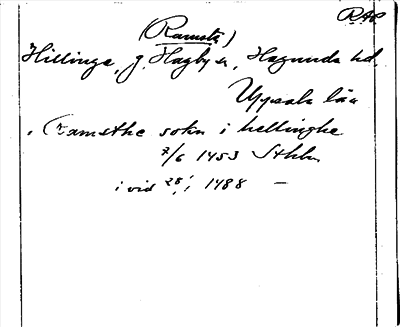 RAP
(Ramsta)
Hillinge, g. Hagby sn, Hagunda hd.
Uppsala län
. Ramsthe sokn i hellinghe
7/6 1453 Sthlm
i vid 28/1 1488 —